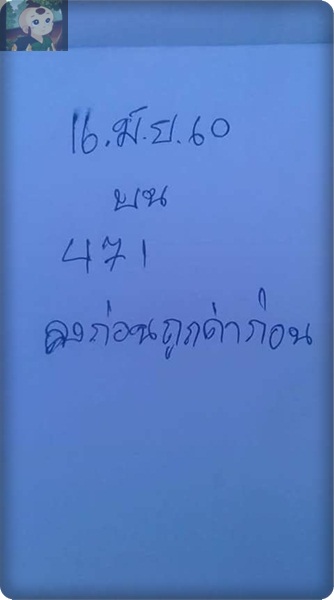 16.มิ.ย.60
บน
471
ลงก่อนถูกด่าก่อน